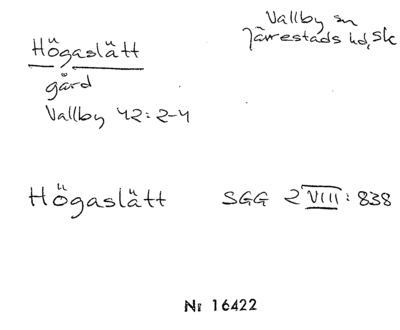 Högaslätt
gård
Vallby 42:2-4
Vallby sn
Järrestads hd, Sk
Högaslätt SGG 2 VIII: 838
Nr 16422